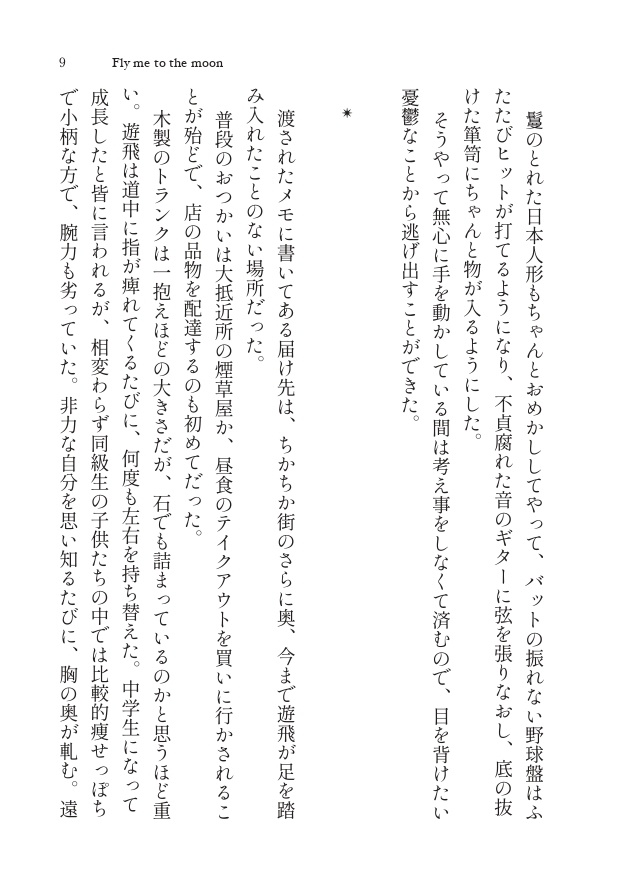 9 Fly me to the moon
鬘のとれた日本人形もちゃんとおめかししてやって、バットの振れない野球盤はふ
たたびヒットが打てるようになり、不貞腐れた音のギターに弦を張りなおし、底の抜
けた箪笥にちゃんと物が入るようにした。
そうやって無心に手を動かしている間は考え事をしなくて済むので、目を背けたい
憂鬱なことから逃げ出すことができた。
＊
渡されたメモに書いてある届け先は、ちかちか街のさらに奥、今まで遊飛が足を踏
み入れたことのない場所だった。
普段のおつかいは大抵近所の煙草屋か、昼食のテイクアウトを買いに行かされるこ
とが殆どで、店の品物を配達するのも初めてだった。
木製のトランクは一抱えほどの大きさだが、石でも詰まっているのかと思うほど重
い。遊飛は道中に指が痺れてくるたびに、何度も左右を持ち替えた。中学生になって
成長したと皆に言われるが、相変わらず同級生の子供たちの中では比較的痩せっぽち
で小柄な方で、腕力も劣っていた。非力な自分を思い知るたびに、胸の奥が軋む。遠